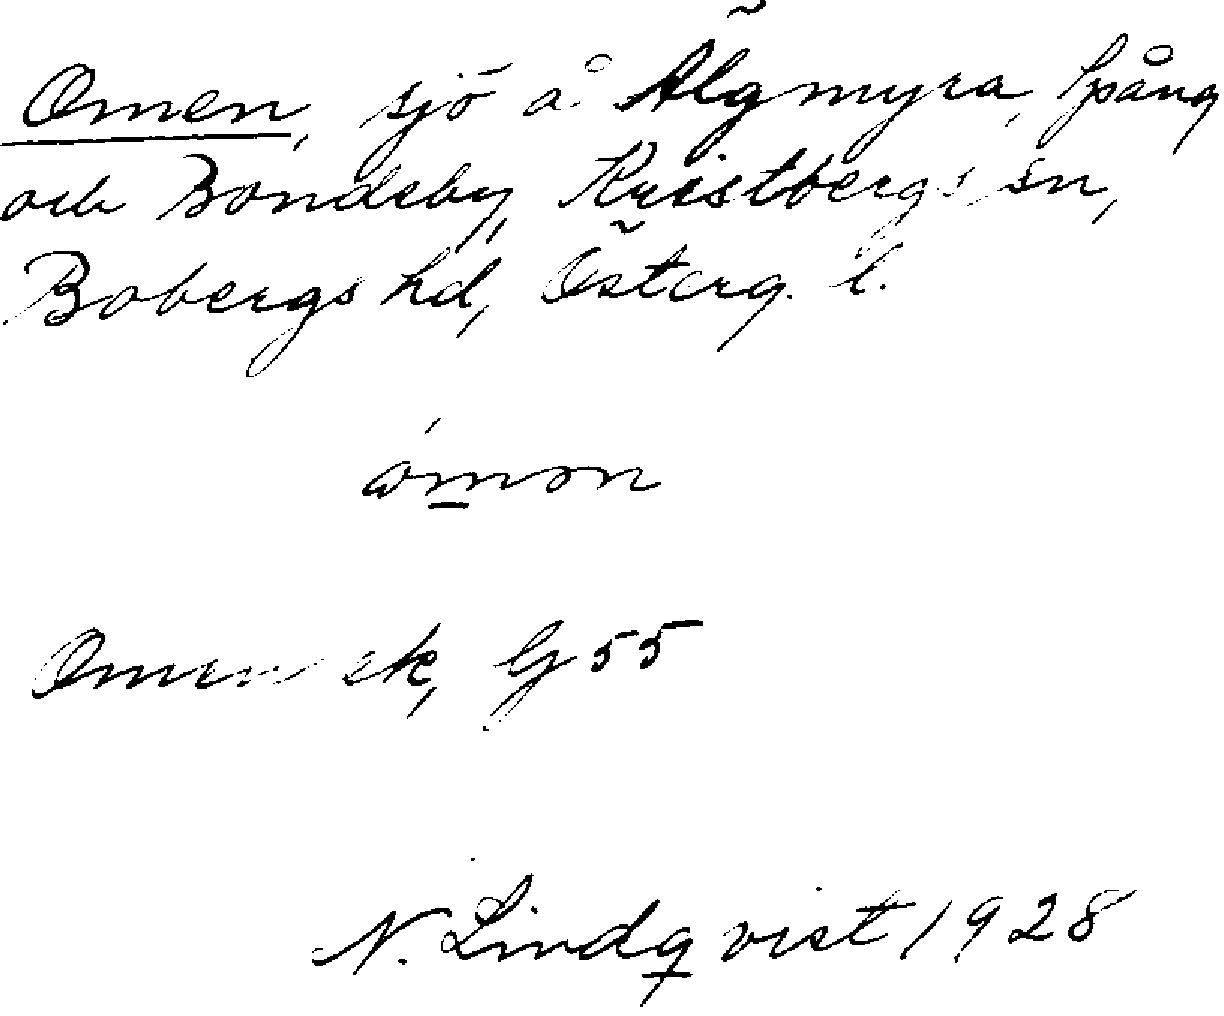 Omen, sjö å Älgmyra, Spång
och Bondeby, Kristbergs sn,
Bobergs hd, Österg. l.
ómən
Omen ek, G 55
N. Lindqvist 1928